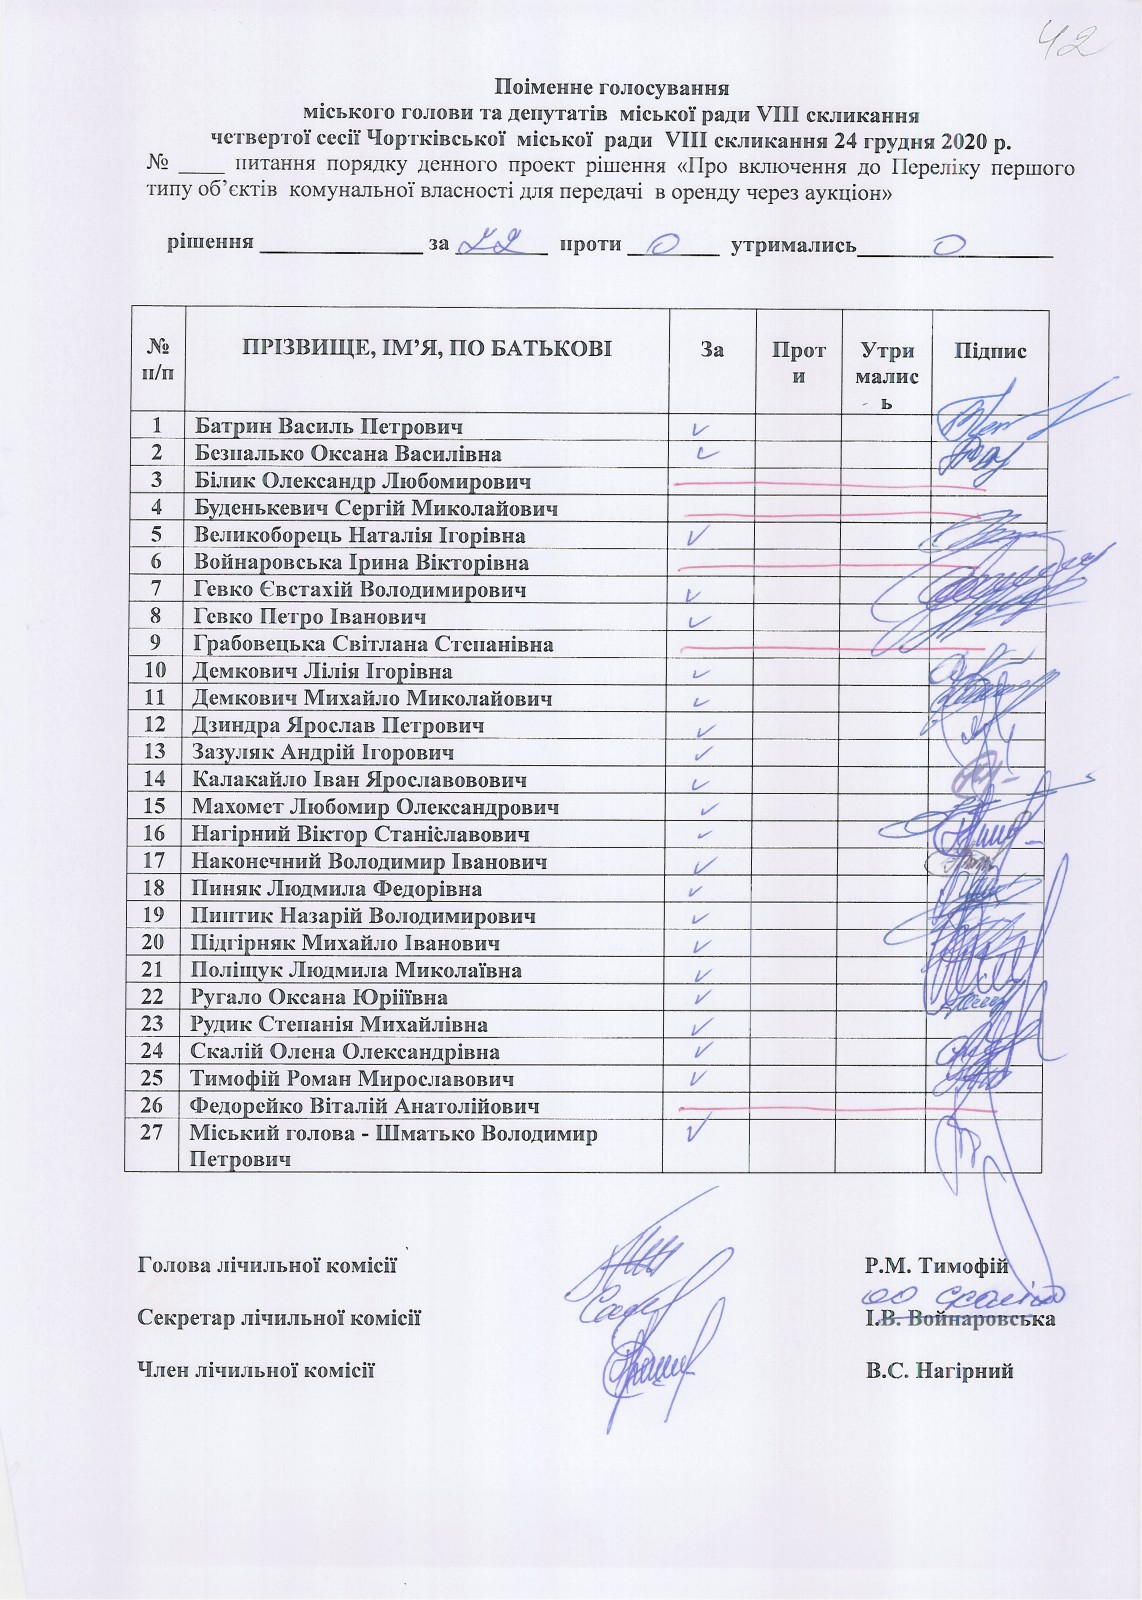 42
Поіменне голосування
міського голови та депутатів міської ради VIII скликання
четвертої сесії Чортківської міської ради VIII скликання 24 грудня 2020 р.
№ ____ питання порядку денного проект рішення «Про включення до Переліку першого
типу об’єктів комунальної власності для передачі в оренду через аукціон»
рішення ______________ за 22 проти 0 утримались 0
№ п/п ПРІЗВИЩЕ, ІМ’Я, ПО БАТЬКОВІ За Проти Утримались Підпис
1 Батрин Василь Петрович ✓
2 Безпалько Оксана Василівна ✓
3 Білик Олександр Любомирович
4 Буденькевич Сергій Миколайович
5 Великоборець Наталія Ігорівна ✓
6 Войнаровська Ірина Вікторівна
7 Гевко Євстахій Володимирович ✓
8 Гевко Петро Іванович ✓
9 Грабовецька Світлана Степанівна
10 Демкович Лілія Ігорівна ✓
11 Демкович Михайло Миколайович ✓
12 Дзиндра Ярослав Петрович ✓
13 Зазуляк Андрій Ігорович ✓
14 Калакайло Іван Ярославовович ✓
15 Махомет Любомир Олександрович ✓
16 Нагірний Віктор Станіславович ✓
17 Наконечний Володимир Іванович ✓
18 Пиняк Людмила Федорівна ✓
19 Пиптик Назарій Володимирович ✓
20 Підгірняк Михайло Іванович ✓
21 Поліщук Людмила Миколаївна ✓
22 Ругало Оксана Юріїівна ✓
23 Рудик Степанія Михайлівна ✓
24 Скалій Олена Олександрівна ✓
25 Тимофій Роман Мирославович ✓
26 Федорейко Віталій Анатолійович
27 Міський голова - Шматько Володимир
Петрович ✓
Голова лічильної комісії Р.М. Тимофій
Секретар лічильної комісії І.В. Войнаровська
Член лічильної комісії В.С. Нагірний